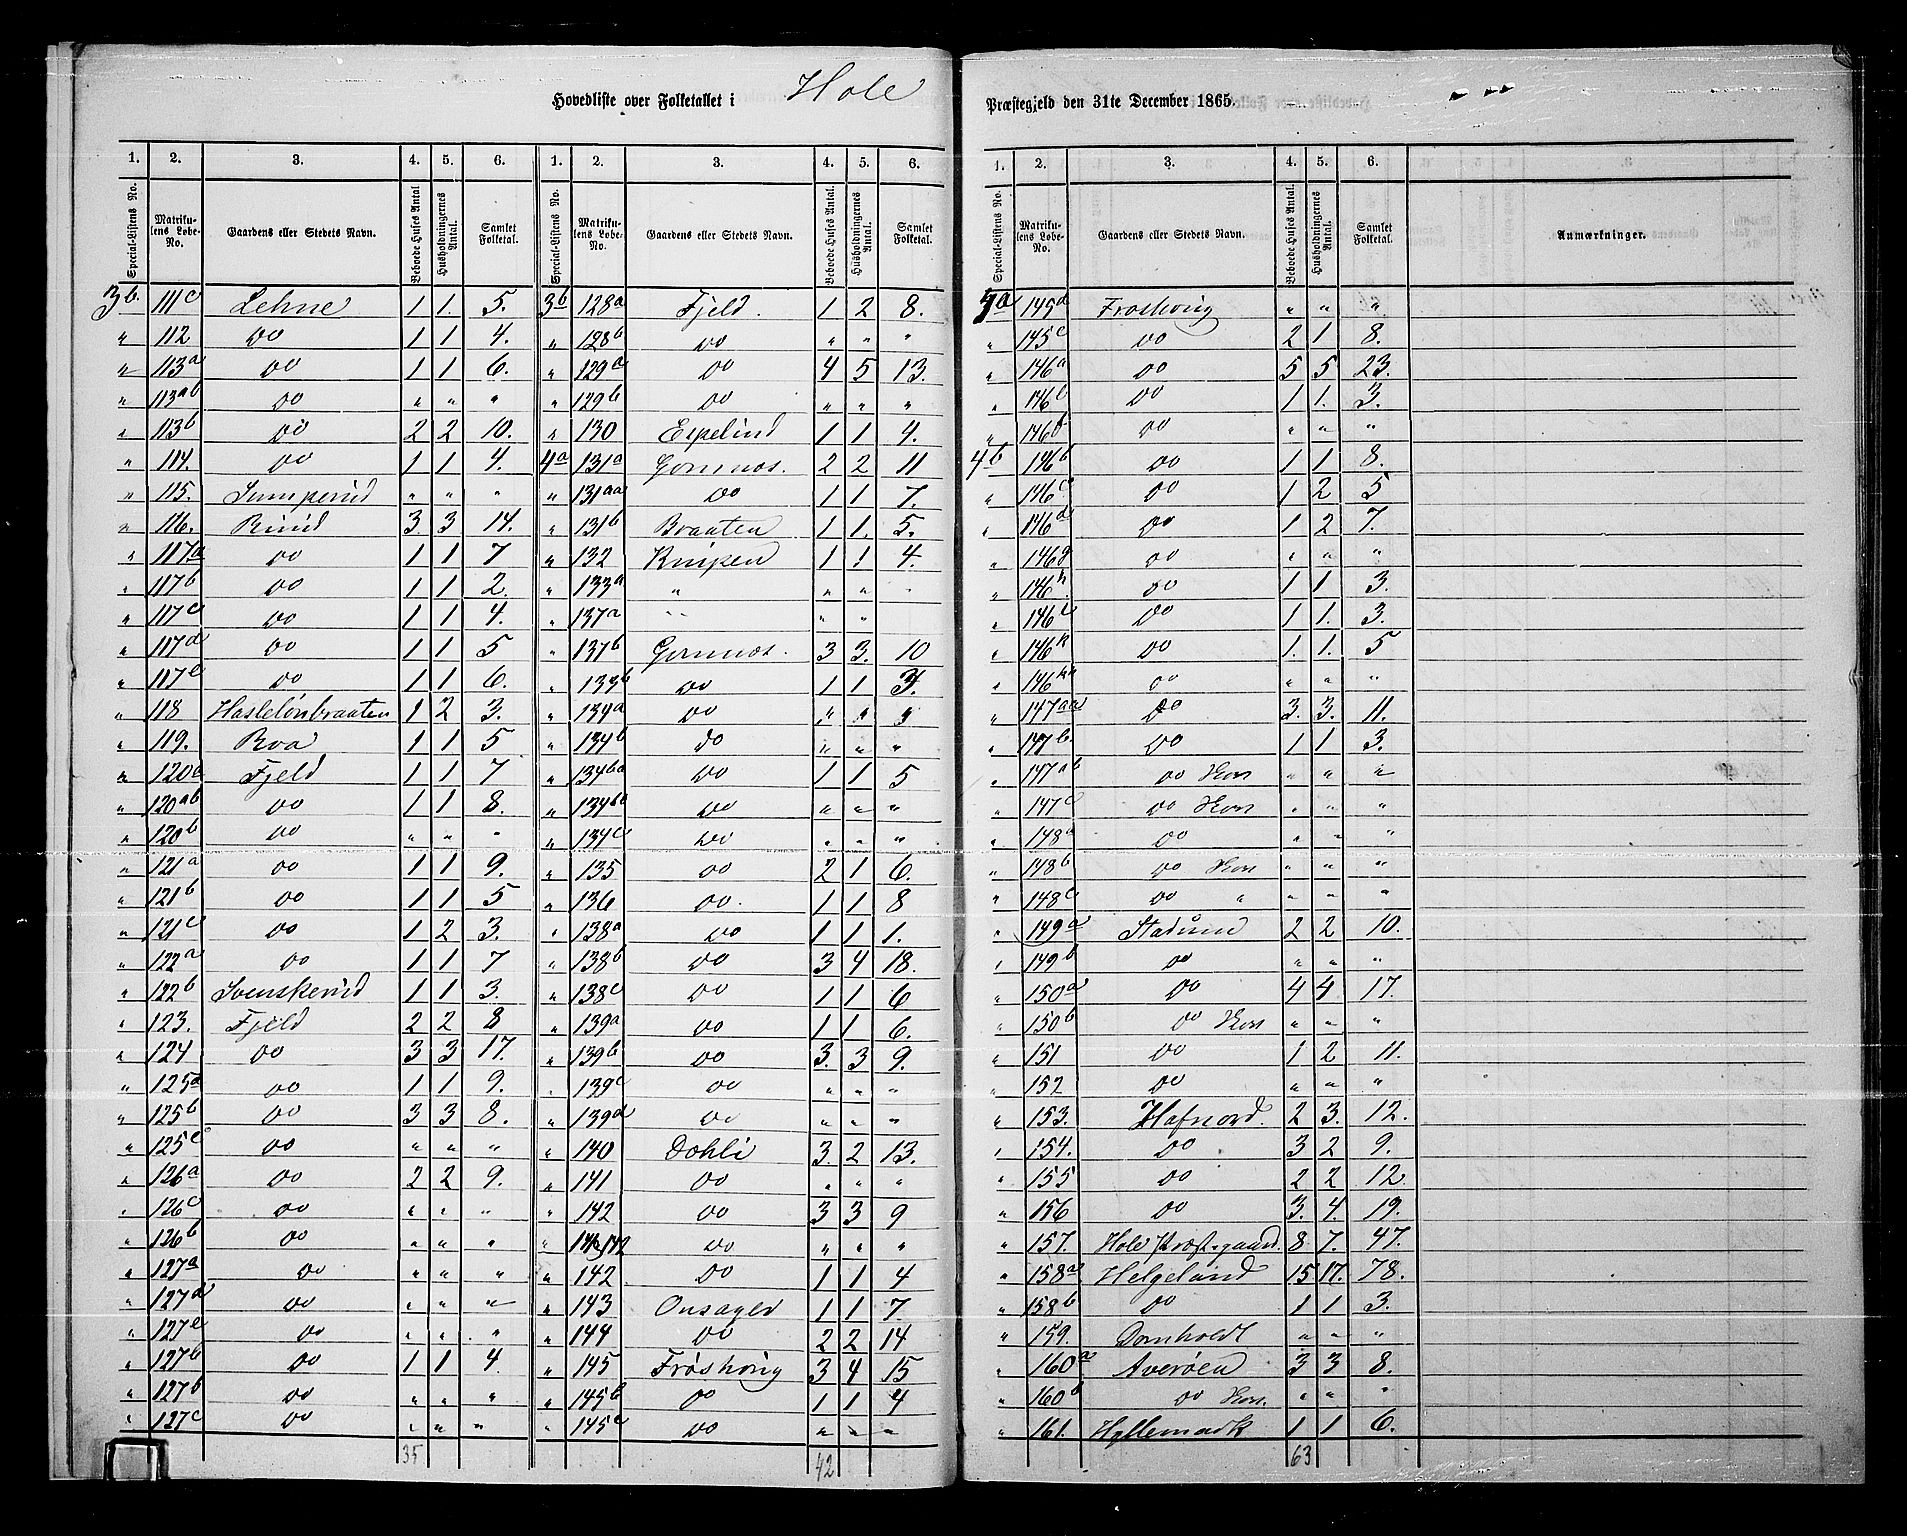 Hovedliste over Folketallet i Hole Præstegjeld den 31te December 1865.
1. 2. 3. 4. 5. 6. 1. 2. 3. 4. 5. 6.
Special-Listens No. Matrikulens Løbe-No. Gaardens eller Stedets Navn. Beboede Huses Antal Husholdningernes Antal. Samlet Folketal. Special-Listens No. Matrikulens Løbe-No. Gaardens eller Stedets Navn. Beboede Huses Antal. Husholdningernes Antal. Samlet Folketal.
3b. 111c Lehne 1 1. 5. 3b 128a Fjeld. 1 2 8.
" 112 do 1 1 4. " 128b do " " "
" 113a do 1 1 6. " 129a do 4 5 13.
" 113ab do " " " " 129b do " " "
" 113b do 2 2 10. " 130 Espelind 1 1 4.
" 114. do 1 1 4. 4a 131a Gomnæs. 2 2 11
" 115. Sumperud " " " " 131aa do 1 1 7.
" 116. Rund 3. 3 14. " 131b Braaten 1 1. 5.
" 117a do 1 1 7 " 132 Knipen 1 1 4.
" 117b do 1 1 2. " 133a " " " "
" 117c do 1 1 4. " 137a " " "
" 117d do 1 1 5 " 137b Gomnæs. 3 3. 10
" 117e do 1 1 6. " 133b do 1 1 3.
" 118 Haslelønbraaten 1 2 3. " 134a do " " "
" 119. Roa 1 1 5 " 134b do " " "
" 120c Fjeld 1 1 7 " 134ba do 1 1 5
" 120ab do 1 1 8. " 134bb do " " "
" 120b do " " " " 134c do " " "
" 121a do 1 1 9. " 135 do 2 1 6.
" 121b do 1 1 5 " 136 do. 1 1 8
" 121c do 1 2 3. " 138a do 1 1 1.
" 122a do 1 1 7 " 138b do 3 4 18.
" 122b Svenskerud 1 1 3. " 138c do 1 1 6
" 123. Fjeld 2 2 8 " 139a do 1 1 6.
" 124 do 3 3 17. " 139b do 3. 3 9.
" 125a do 1 1 9. " 139c do " " "
" 125b do 3 3 8. " 139d do " " "
" 125c do " " " " 140 Dohli 3. 2 13.
" 126a do 2 2 9. " 141 do " " "
" 126c do " " " " 142 do 3 3 9
" 126b do " " " " 142 do " " "
" 127a do " " " " 142 do 1 1 4
" 127d do " " " " 143 Onsager 1 1 7.
" 127e do " " " " 144 do 2 2 14
" 127b do 1 1 4 " 145 Frøshoug 3 4 15
" 127b do " " " " 145b do 1 1 4
" 127c do " " " " 145c do " " "
35 42
1. 2. 3. 4. 5. 6.
Special-Listens No. Matrikulens Løbe-No. Gaardens eller Stedets Navn. Beboede Huses Antal. Husholdningernes Antal. Samlet Folketal. Anmærkninger.
4a 145d Froshoug " " "
" 145e do 2 1 8.
" 146a do 5 5 23.
" 146e do 1 1. 3.
" 146f do " " "
4b 146b do 1 1 8.
" 146c do 1 2 5
" 146d do 1 2 7.
" 146g do " " "
" 146h. do 1 1 3.
" 146i do 1 1. 3.
" 146k do 1. 1. 5
" do " " "
" 147aa do 3. 3. 11.
" 147b. do 1 1 3.
" 147ab do " " "
" 147c do " " "
" 148a do " " "
" 148b do " " "
" 148c do " " " "
" 149a Stadum 2 2 10.
" 149b do " " "
" 150a do 4 4 17.
" 150b do " " "
" 151 do 1 2 11.
" 152 do " " "
" 153. Hafnord. 2 3. 12.
" 154. do 3 2 9.
" 155 do 2 2 12
" 156 do 3. 4. 19.
" 157. Hole Præstegaard. 8 7. 47.
" 158a Helgeland 15 17. 78.
" 158b do 1 1 3.
" 159. Domholdt " " "
" 160a Averøen 3 3 8.
" 160b do " " "
" 161. Hyllemark 1 1 6.
63